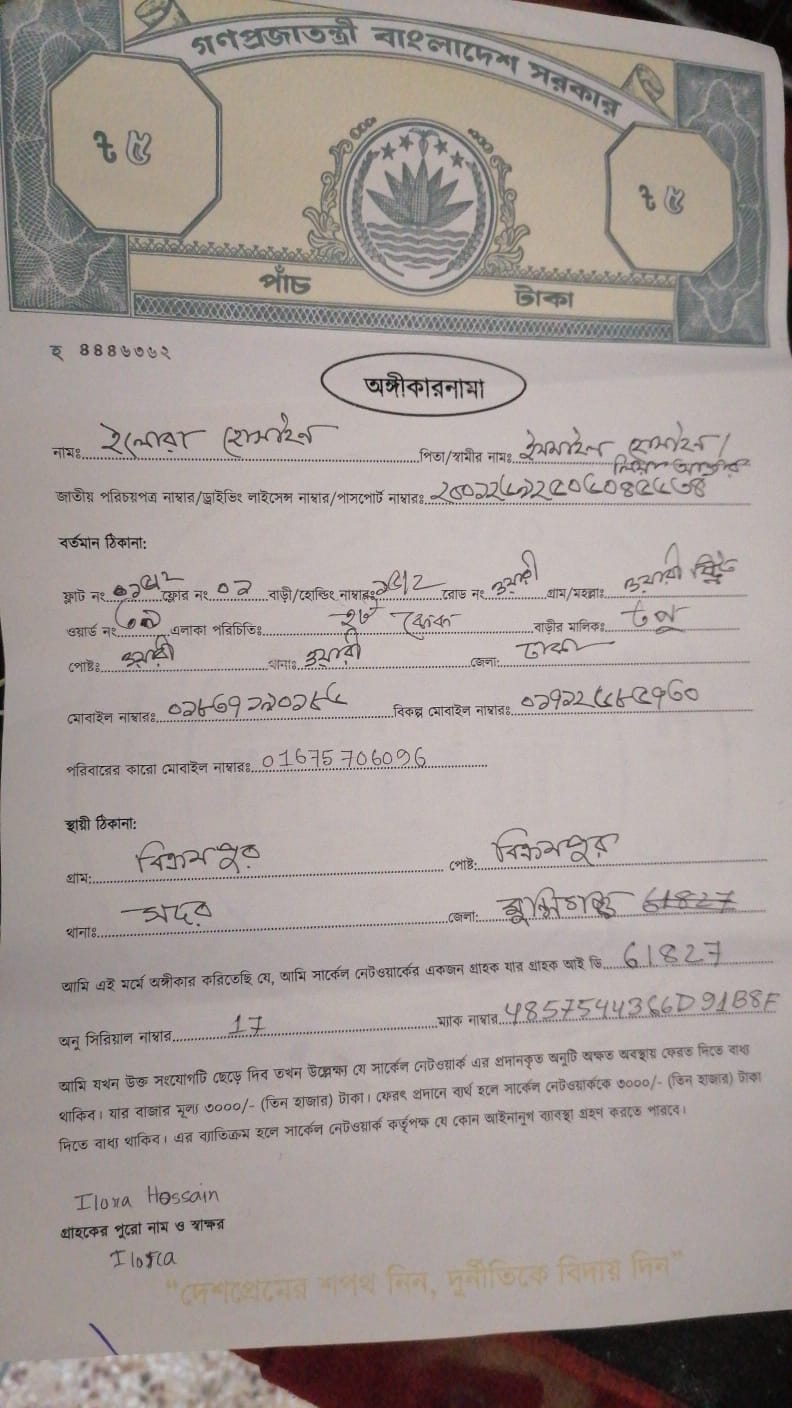 গণপ্রজাতন্ত্রী বাংলাদেশ সরকার
৳ ৫
৳ ৫
পাঁচ টাকা
হ ৪৪৪৬৩৬২
অঙ্গীকারনামা
নামঃ ইলোরা হোসাইন পিতা/স্বামীর নামঃ ইসমাইল হোসাইন /
জাতীয় পরিচয়পত্র নাম্বার/ড্রাইভিং লাইসেন্স নাম্বার/পাসপোর্ট নাম্বারঃ
বর্তমান ঠিকানা:
ফ্লাট নং ফ্লোর নং ০২ বাড়ী/হোল্ডিং নাম্বারঃ রোড নং ওয়ারী গ্রাম/মহল্লাঃ ওয়ারী স্ট্রিট
ওয়ার্ড নং এলাকা পরিচিতিঃ বাড়ীর মালিকঃ
পোষ্টঃ ওয়ারী থানাঃ ওয়ারী জেলা: ঢাকা
মোবাইল নাম্বারঃ বিকল্প মোবাইল নাম্বারঃ
পরিবারের কারো মোবাইল নাম্বারঃ 01675706096
স্থায়ী ঠিকানা:
গ্রাম: বিক্রমপুর পোষ্ট: বিক্রমপুর
থানাঃ সদর জেলা: মুন্সিগঞ্জ 61827
আমি এই মর্মে অঙ্গীকার করিতেছি যে, আমি সার্কেল নেটওয়ার্কের একজন গ্রাহক যার গ্রাহক আই ডি 61827
অনু সিরিয়াল নাম্বার 17 ম্যাক নাম্বার 4857544366D91B8F
আমি যখন উক্ত সংযোগটি ছেড়ে দিব তখন উল্লেখ্য যে সার্কেল নেটওয়ার্ক এর প্রদানকৃত অনুটি অক্ষত অবস্থায় ফেরত দিতে বাধ্য
থাকিব। যার বাজার মূল্য ৩০০০/- (তিন হাজার) টাকা। ফেরৎ প্রদানে ব্যর্থ হলে সার্কেল নেটওয়ার্ককে ৩০০০/- (তিন হাজার) টাকা
দিতে বাধ্য থাকিব। এর ব্যতিক্রম হলে সার্কেল নেটওয়ার্ক কর্তৃপক্ষ যে কোন আইনানুগ ব্যবস্থা গ্রহণ করতে পারবে।
Ilora Hossain
গ্রাহকের পুরো নাম ও স্বাক্ষর
Ilora
“দেশপ্রেমের শপথ নিন, দুর্নীতিকে বিদায় দিন”